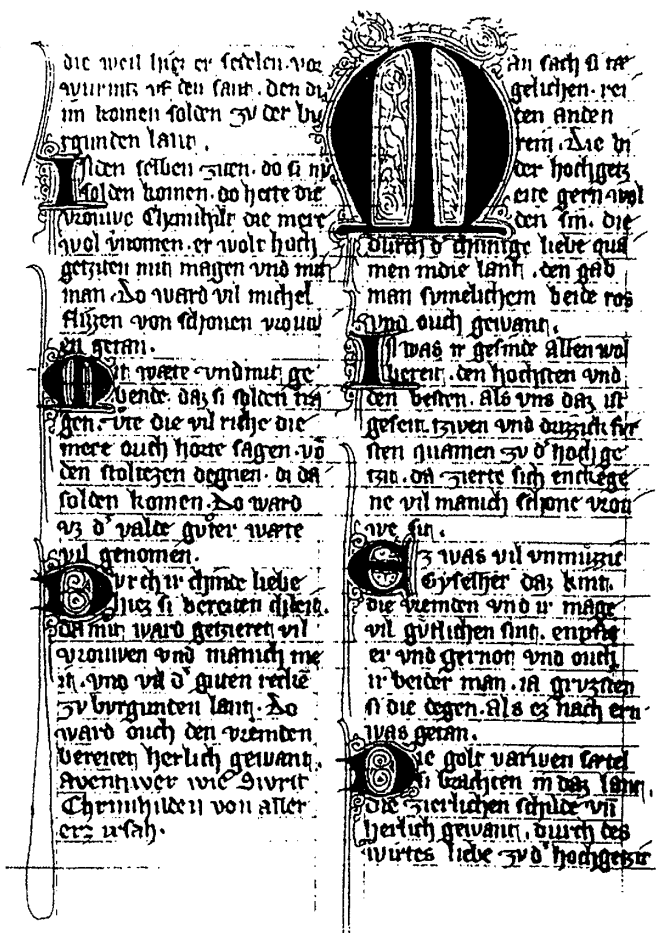 die weil hier er sedelen vor
wurmtz vf den sant. den di
im komen solden zv der bv
rgunden lant.
In den selben ziten. do si nv
solden komen. do hette die
vrouwe Chrimhilt die mere
wol vnomen. er wolt hoch
getziten mit magen vnd mit
man. Do ward vil michel
flizzen von schonen vrouw
en getan.
Mit wæte vnd mit ge
bende. daz si solden tra
gen. vte die vil riche die
mere ouch horte sagen. võ
den stoltzen degnen. di da
solden komen. Do ward
vz d' valde gůter wæte
vil genomen.
Durch ir chinde liebe
hiez si bereiten chleid.
da mit ward getzieret vil
vrouwen vnd manich me
it. vnd vil d' guten reckē
zv bvrgunden lant. Do
ward ouch den vremden
bereitet herlich gewant.
aventiwer wie Sivrit
Chrimhilden von aller
erz ersah.
Man sach si tæ
gelichen. rei
ten anden
rein. die di
der hochgetz
eite gern wol
den sin. die
durch d' chunige liebe qua
men in die lant. den gab
man sumelichem beide ros
vnd ouch gewant.
Is was ir gesinde allen wol
bereit. den hochsten vnd
den besten. als vns daz ist
geseit. tzwen vnd drizzich fur
sten quamen zv d' hochge
tzit. da zierte sich enckege
ne vil manich schone vrou
we sit.
Ez was vil vnmuzzic
Gyselher daz kint.
die vremden vnd ir mage
vil gůtlichen sint. enpfie
er vnd gernot vnd ouch
ir beider man. ia gruzten
si die degen. als ez nach ern
was getan.
Die golt varwen sætel
si brachten in daz lant.
die zierlichen schilde vñ
herlich gewant. durch des
wirtes liebe zv d' hochgetzit